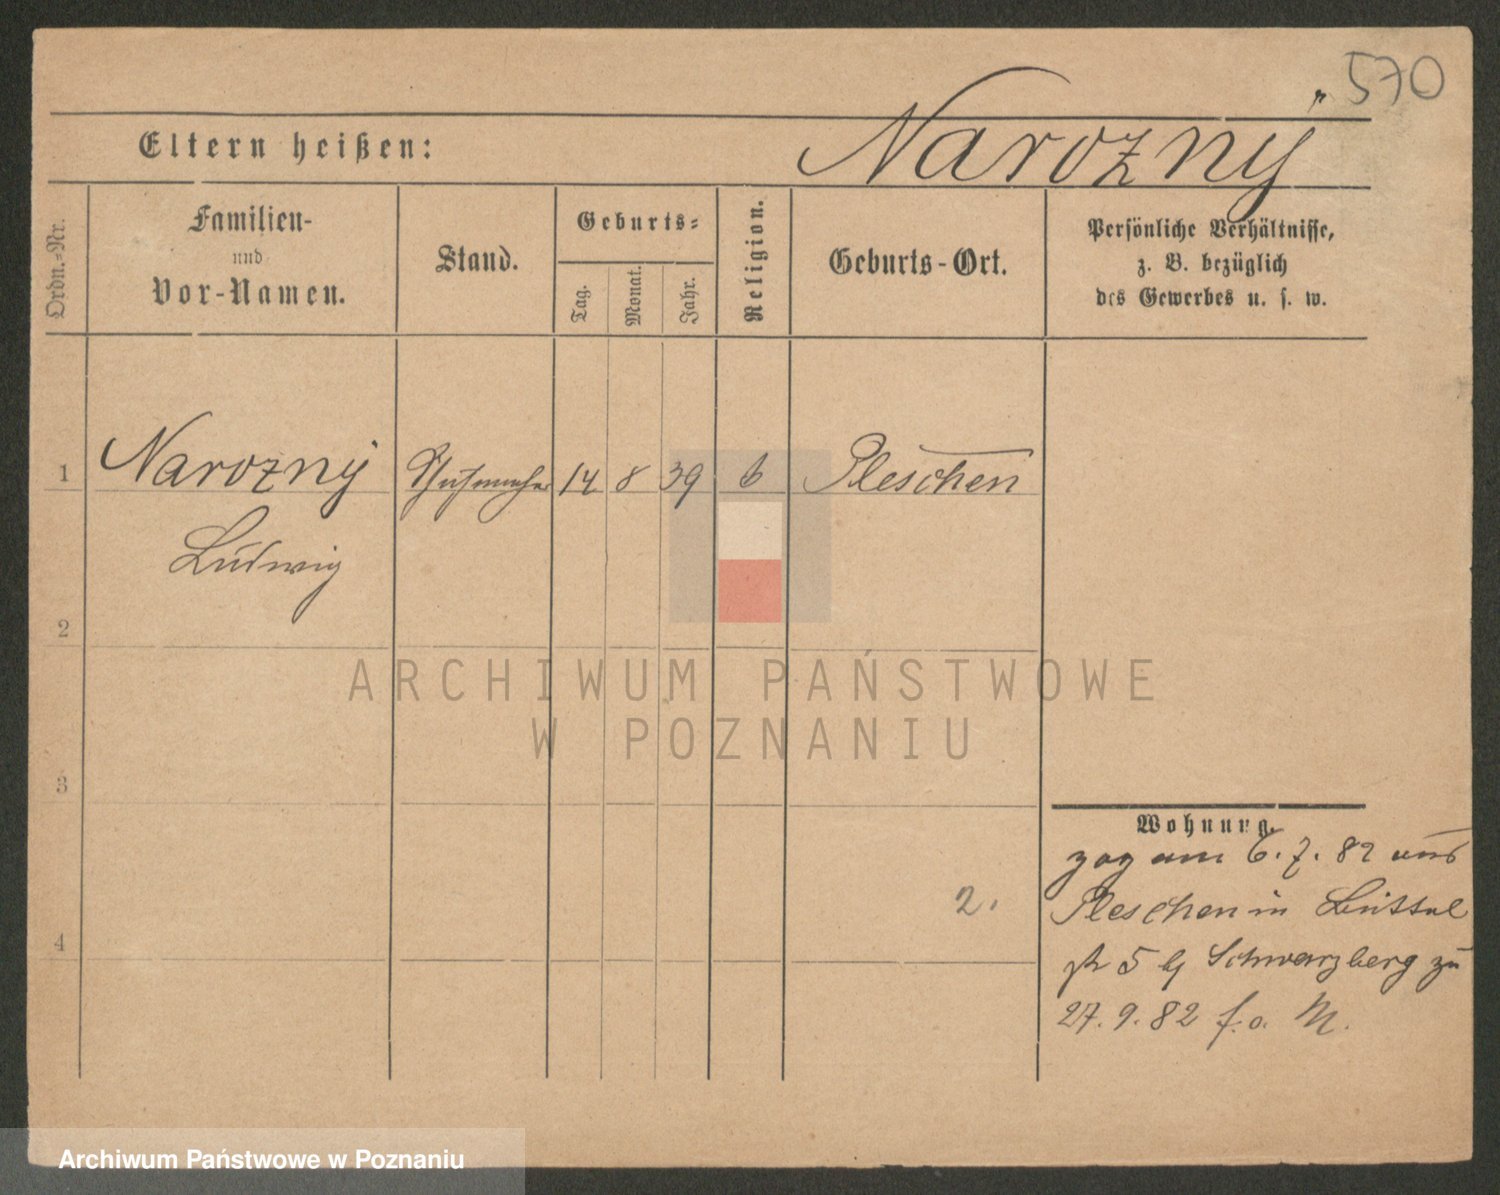 570
Narozny
Eltern heißen:
Ordn.-Nr.
Familien-
und
Vor-Namen.
Stand.
Geburts-
Tag.
Monat.
Jahr.
Religion.
Geburts-Ort.
Persönliche Verhältnisse,
z. B. bezüglich
des Gewerbes u. s. w.
1 Narozny Schuhmacher 14 8 39 Pleschen
Ludwig
2
3
4
Wohnung.
zog am 6. 7. 82 aus
Pleschen in
5 Schwarzberg zu
27. 9. 82 f. o. M.
2.
ARCHIWUM PAŃSTWOWE
W POZNANIU
Archiwum Państwowe w Poznaniu